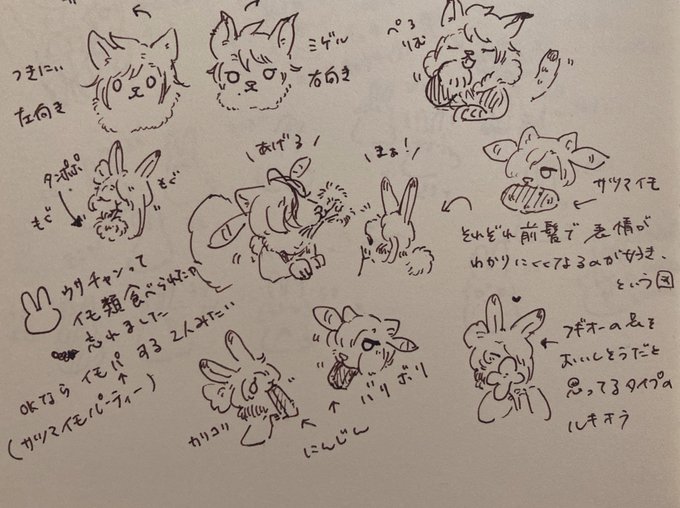 つきにい
左向き
ミゲル
右向き
ぺろ
りぱ
タンポポ
もぐ
もぐ
あげる
まぁ!
サツマイモ
それぞれ前髪で表情が
わかりにくくなるのが好き、
という図
ウサチャンって
イモ類食べられたか
忘れました
OKなら イモパ する 2人みたい
(サツマイモパーティー)
カリコリ
にんじん
バリ ボリ
フギオーの気を
おいしそうだと
思ってるタイプの
ルキオラ